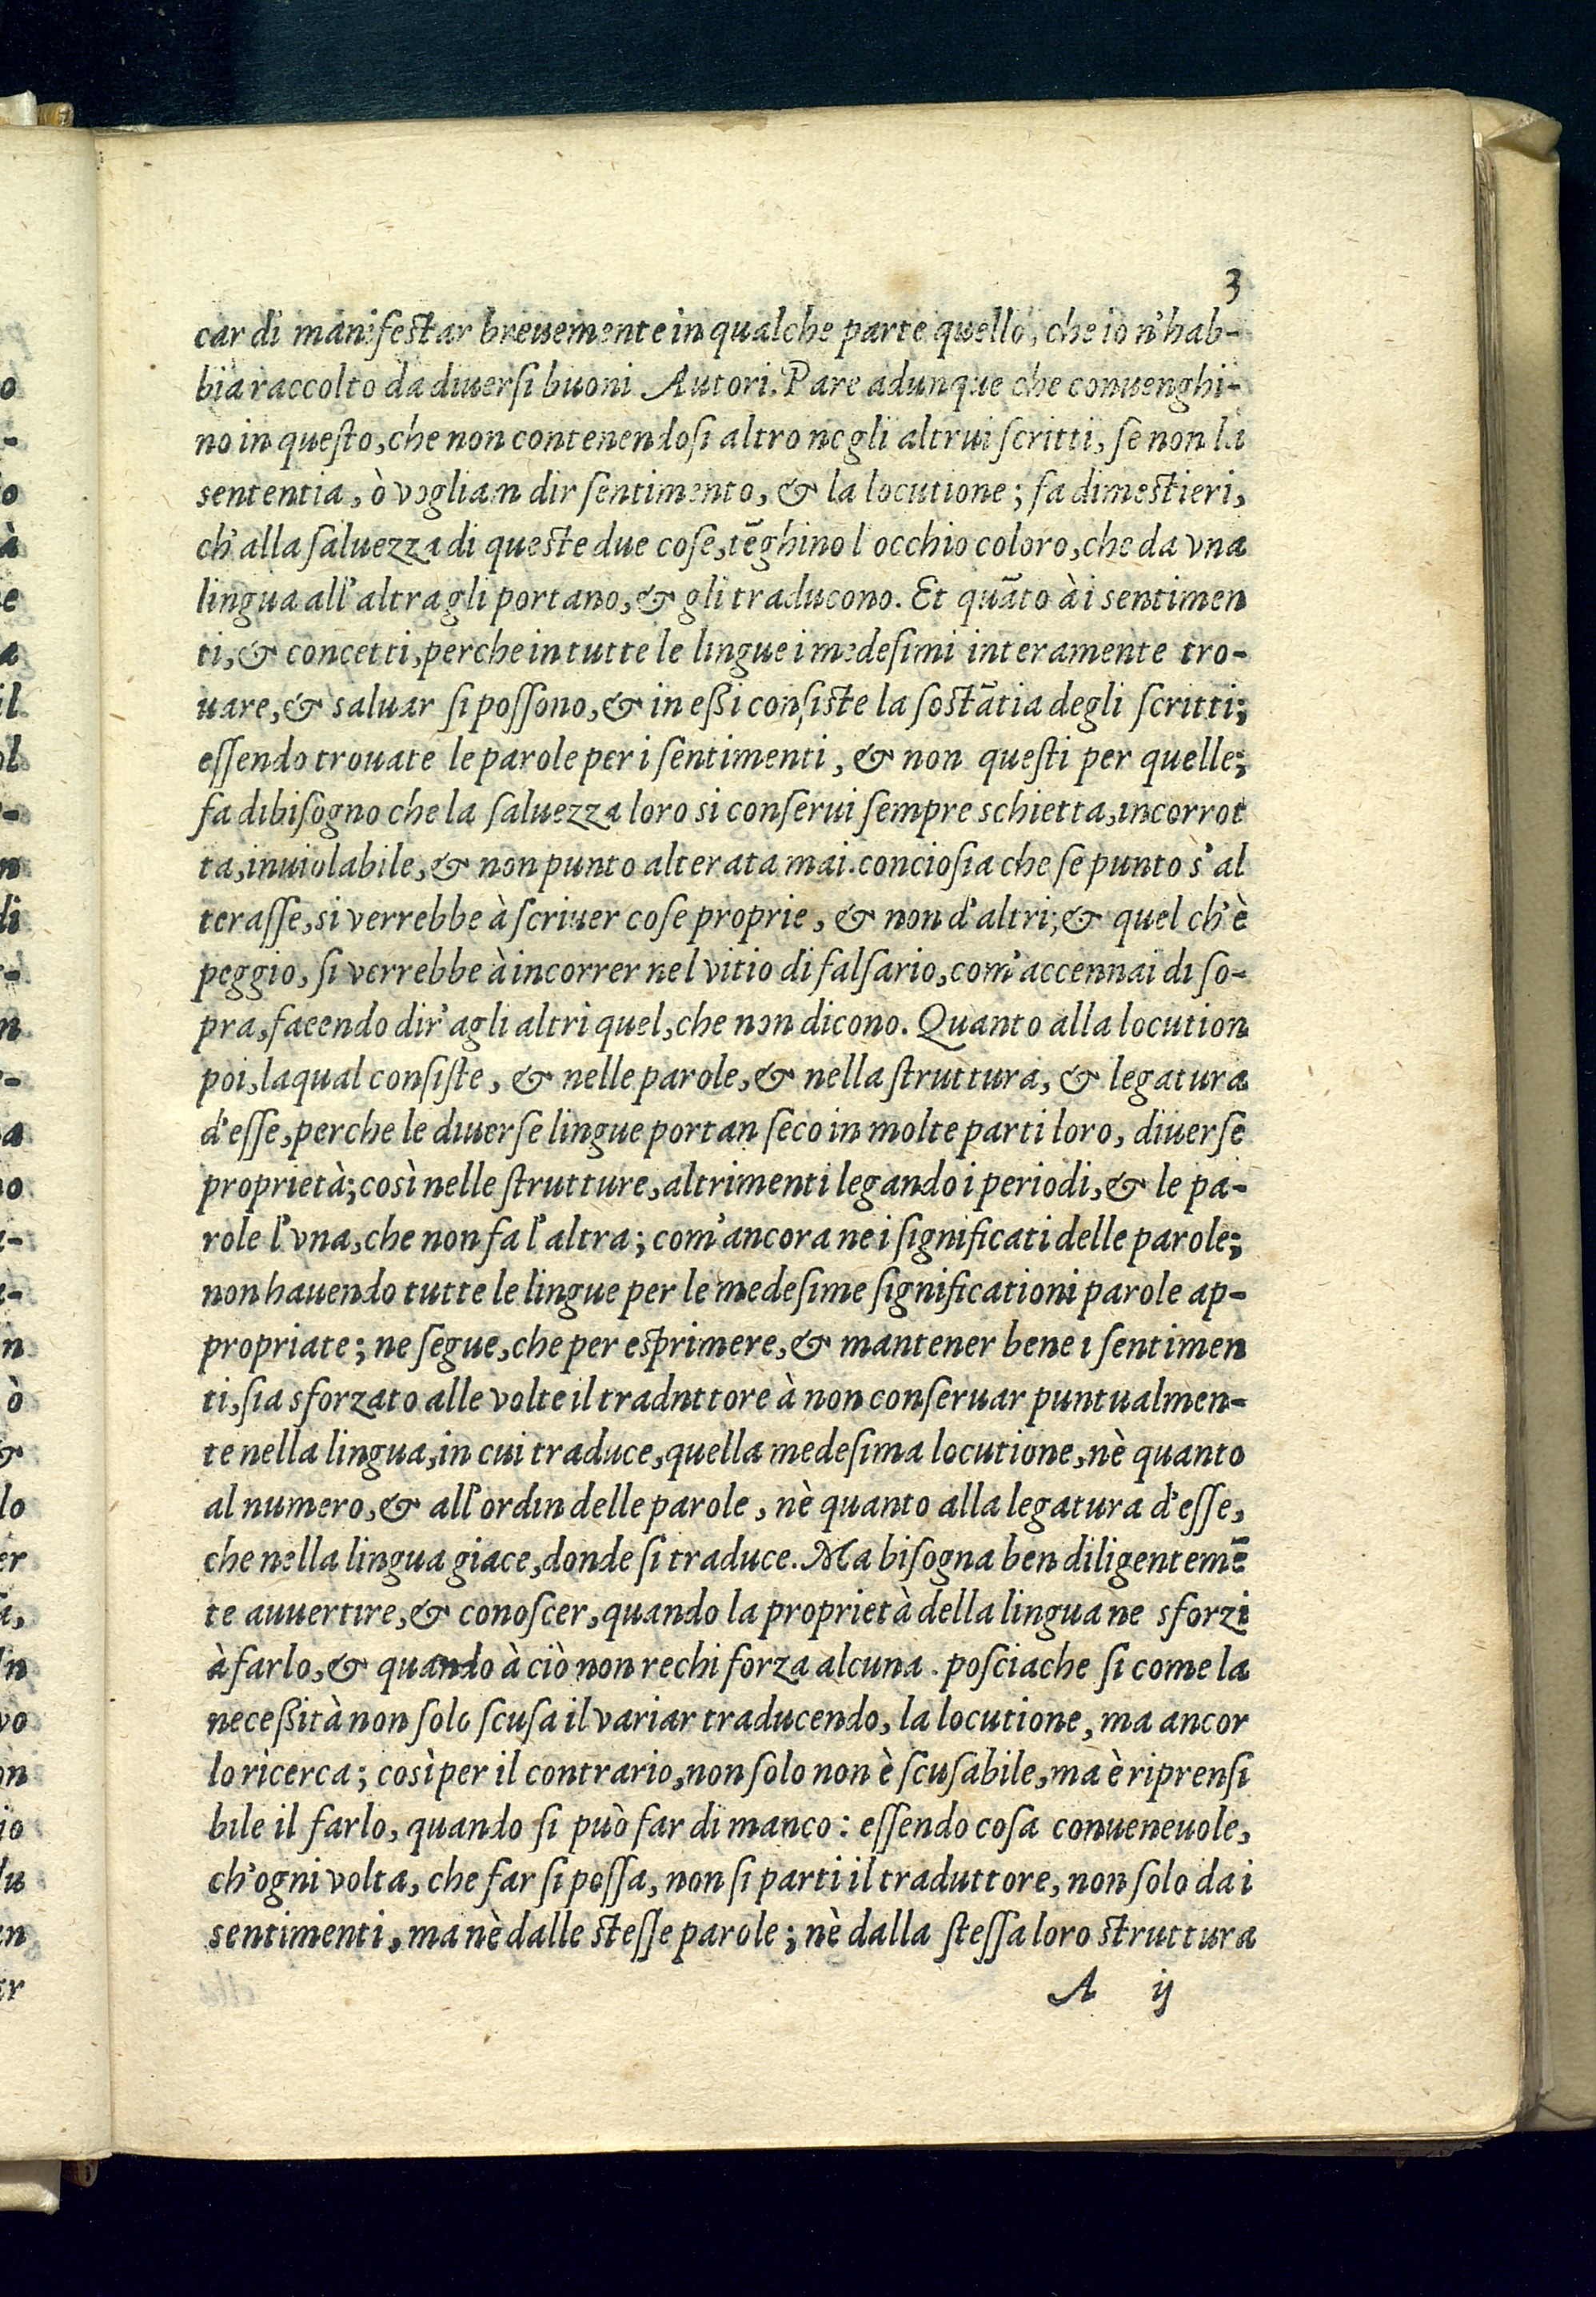 3
car di manifeſtar breuemente in qualche parte quello, che io n'hab-
bia raccolto da diuerſi buoni Autori. Pare adunque che conuenghi-
no in queſto, che non contenendoſi altro negli altrui ſcritti, ſe non la
sententia, ò vogliam dir ſentimento, & la locutione; fa dimeſtieri,
ch'alla ſaluezza di queſte due coſe, tēghino l'occhio coloro, che da vna
lingua all'altra gli portano, & gli traducono. Et quāto à i sentimen
ti, & concetti, perche in tutte le lingue i medeſimi interamente tro-
uare, & saluar ſi poſſono, & in eßi conſiſte la ſoſtātia degli ſcritti;
eſſendo trouate le parole per i ſentimenti, & non queſti per quelle;
fa dibiſogno che la ſaluezza loro si conſerui ſempre schietta, incorrot
ta, inuiolabile, & non punto alterata mai. concioſia che ſe punto s'al
teraſſe, si verrebbe à ſcriuer coſe proprie, & non d'altri; & quel ch'è
peggio, ſi verrebbe à incorrer nel vitio di falſario, com'accennai di ſo-
pra, facendo dir'agli altri quel, che non dicono. Quanto alla locution
poi, laqual conſiſte, & nelle parole, & nella ſtruttura, & legatura
d'eſſe, perche le diuerſe lingue portan ſeco in molte parti loro, diuerſe
proprietà; così nelle ſtrutture, altrimenti legando i periodi, & le pa-
role l'vna, che non fa l'altra; com'ancora ne i ſignificati delle parole;
non hauendo tutte le lingue per le medeſime ſignificationi parole ap-
propriate; ne ſegue, che per eſprimere, & mantener bene i ſentimen
ti, ſia sforzato alle volte il tradnttore à non conſeruar puntualmen-
te nella lingua, in cui traduce, quella medeſima locutione, nè quanto
al numero, & all'ordin delle parole, nè quanto alla legatura d'eſſe,
che nella lingua giace, donde ſi traduce. Ma biſogna ben diligentemē
te auuertire, & conoſcer, quando la proprietà della lingua ne sforzi
à farlo, & quando à ciò non rechi forza alcuna. poſciache ſi come la
neceßità non ſolo ſcuſa il variar traducendo, la locutione, ma ancor
lo ricerca; così per il contrario, non ſolo non è ſcuſabile, ma è riprenſi
bile il farlo, quando ſi può far di manco: eſſendo coſa conueneuole,
ch'ogni volta, che far ſi poſſa, non ſi parti il traduttore, non ſolo da i
sentimenti, ma nè dalle ſteſſe parole; nè dalla ſteſſa loro ſtruttura
A ij